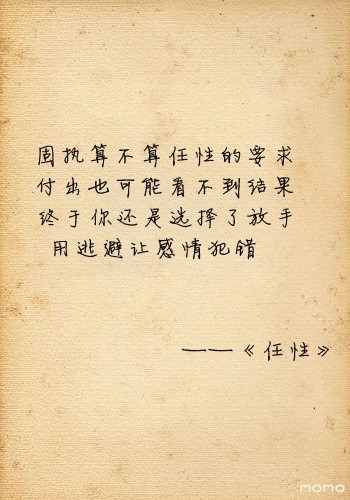 固执算不算任性的要求
付出也可能看不到结果
终于你还是选择了放手
用逃避让感情犯错
——《任性》
momo